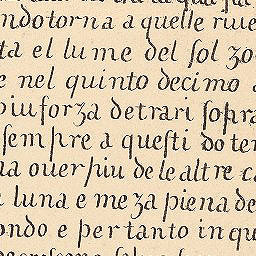 ndo torna a quelle riue
ta el lume del ſol zo
e nel quinto decimo
piu forza detrari ſopra
ſempre a queſti do ter
na ouer piu de le altre c
luna e meza piena de
ondo e per tanto in qu